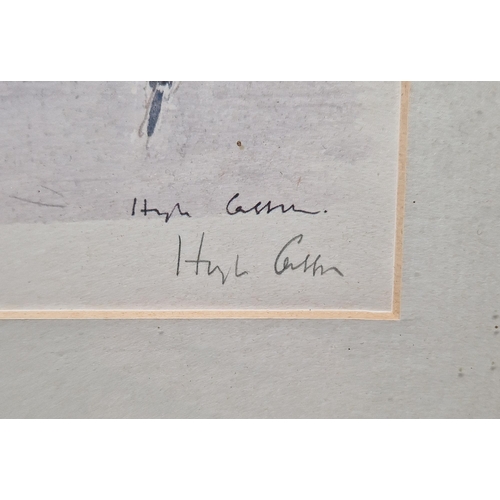 Hugh Casson.
Hugh Casson